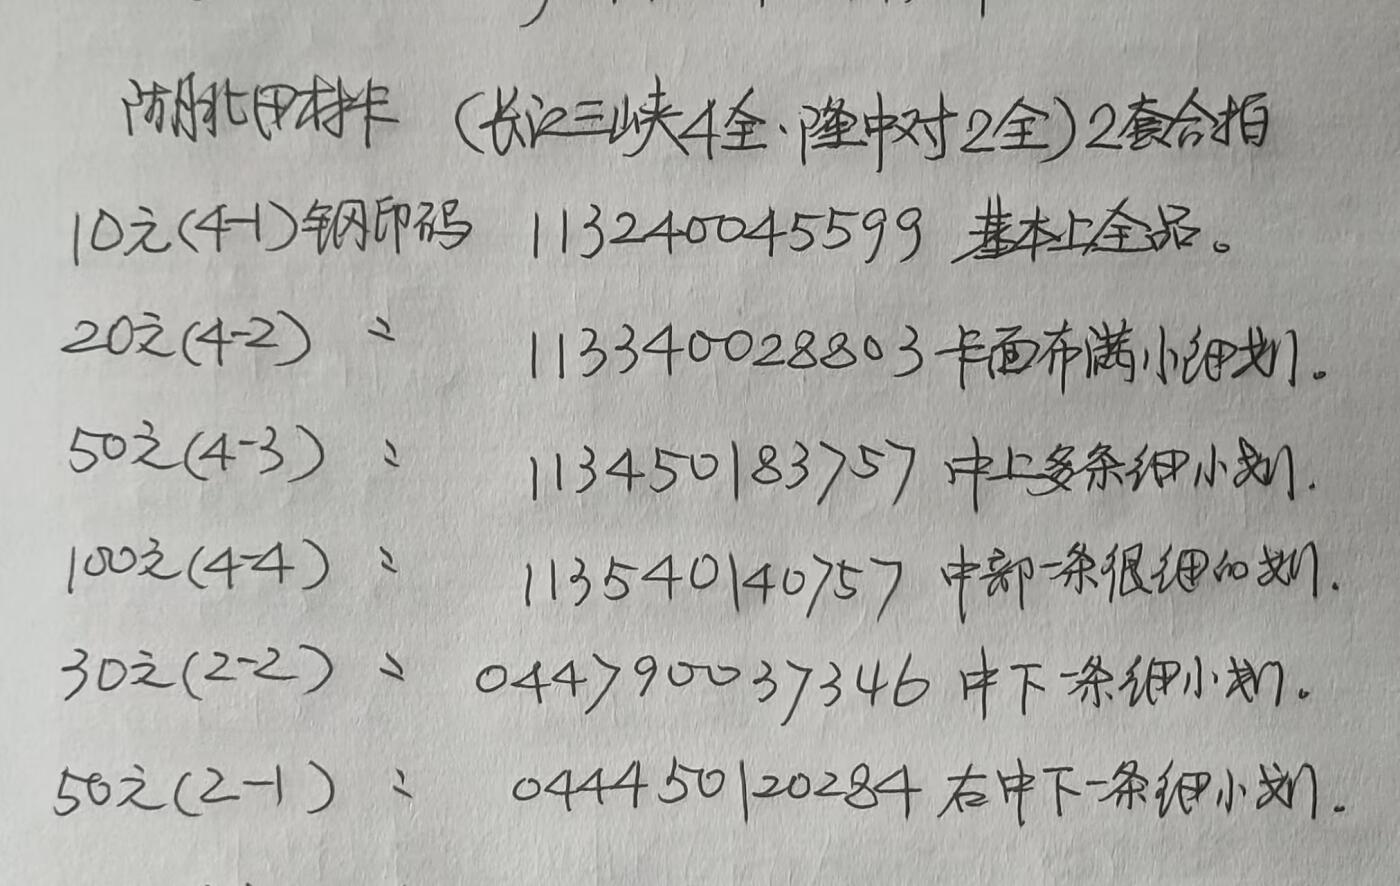 湖北田村卡 (长江三峡4全·隆中对2全)2套合拍
10元(4-1)钢印码 113240045599 基本上全品。
20元(4-2) 〃 113340028803 卡面布满小细划。
50元(4-3) 〃 113450183757 中上多条细小划.
100元(4-4) 〃 113540140757 中部一条很细的划.
30元(2-2) 〃 044790037346 中下一条细小划。
50元(2-1) 〃 044450120284 右中下一条细小划.